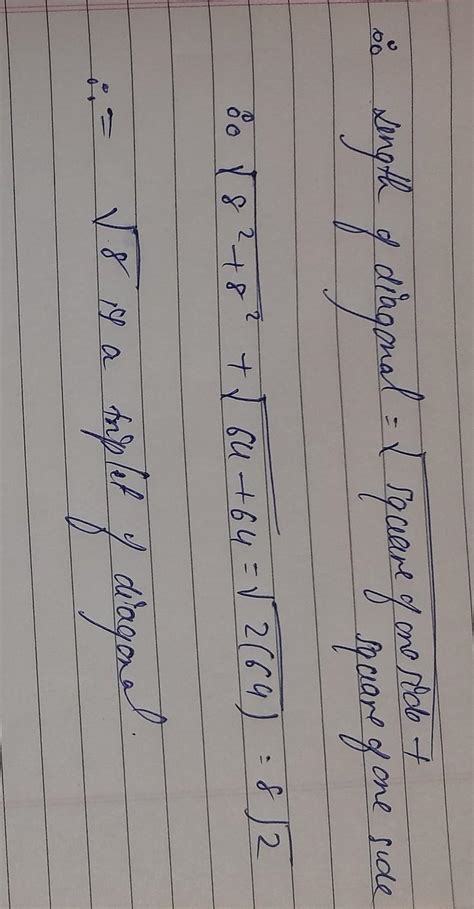 ∴ Length of diagonal = √square of one side +
square of one side
∴ √8² + 8² + √64 + 64 = √2(64) = 8√2
∴ = √8 is a triplet of diagonal.